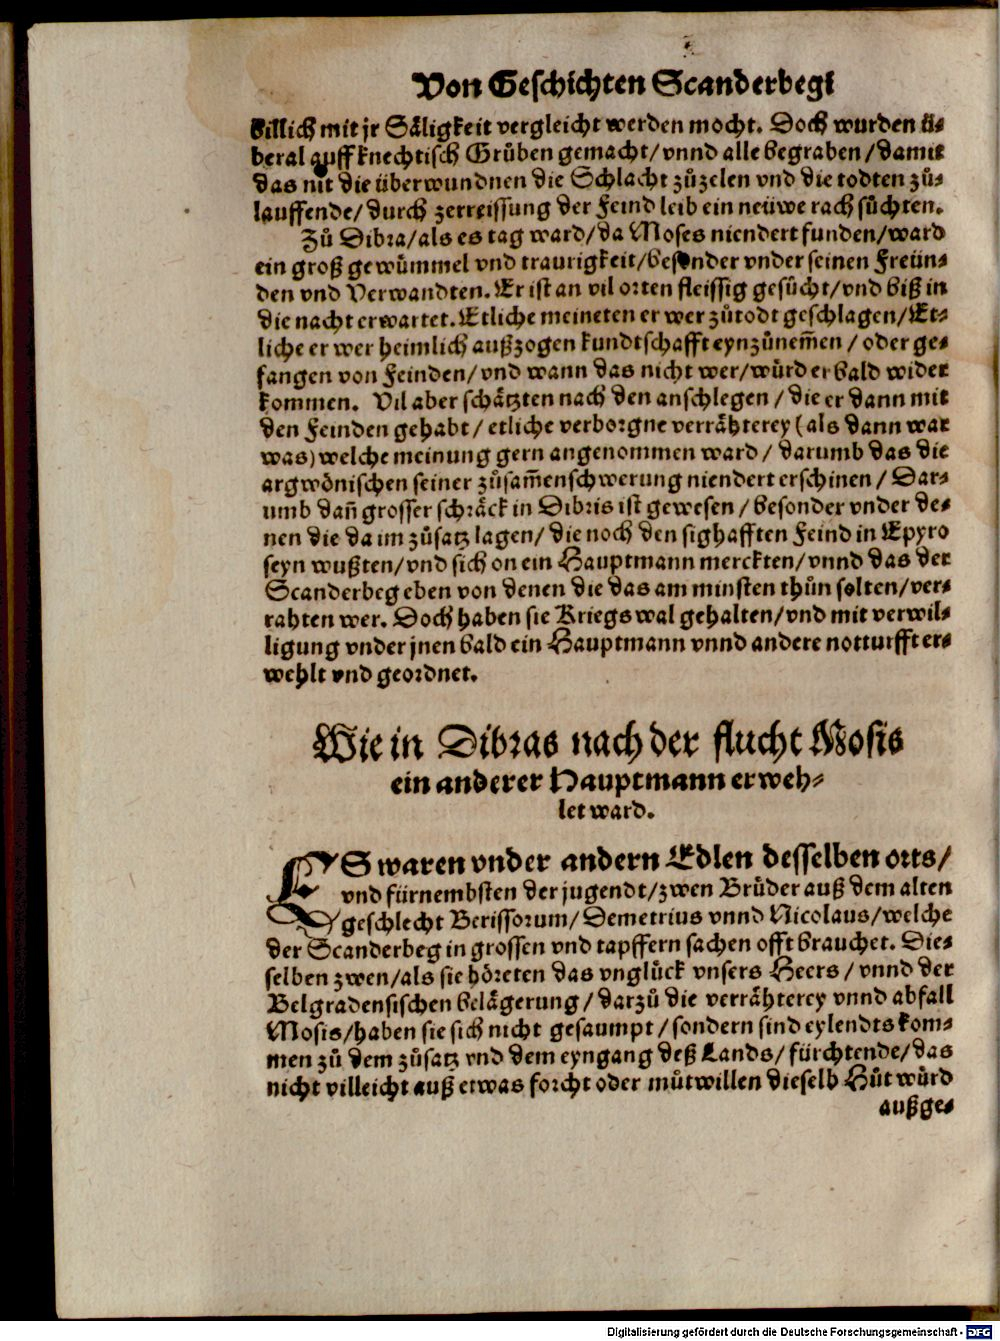 Von Geschichten Scanderbegi
billich mit jr Säligkeit vergleicht werden mocht. Doch wurden ü-
beral auff knechtisch Grůben gemacht/ vnnd alle begraben/ damit
das nit die überwundnen die Schlacht zůzelen vnd die todten zů-
lauffende/ durch zerreissung der Feind leib ein neüwe rach sůchten.
Zů Dibra/ als es tag ward/ da Moses niendert funden/ ward
ein groß gewümmel vnd traurigkeit/ besonder vnder seinen Freün-
den vnd Verwandten. Er ist an vil orten fleissig gesůcht/ vnd biß in
die nacht erwartet. Etliche meineten er wer zůtodt geschlagen/ Et-
liche er wer heimlich außzogen kundtschafft eynzůnem̃en/ oder ge-
fangen von Feinden/ vnd wann das nicht wer/ würd er bald wider
kommen. Vil aber schätzten nach den anschlegen/ die er dann mit
den Feinden gehabt/ etliche verborgne verrähterey (als dann war
was) welche meinung gern angenommen ward/ darumb das die
argwönischen seiner zůsam̃enschwerung niendert erschinen/ Dar-
umb dañ grosser schräck in Dibris ist gewesen/ besonder vnder de-
nen die da im zůsatz lagen/ die noch den sighafften Feind in Epyro
seyn wußten/ vnd sich on ein Hauptmann merckten/ vnnd das der
Scanderbeg eben von denen die das am minsten thůn solten/ ver-
rahten wer. Doch haben sie Kriegs wal gehalten/ vnd mit verwil-
ligung vnder jnen bald ein Hauptmann vnnd andere notturfft er-
wehlt vnd geordnet.
Wie in Dibras nach der flucht Mosis
ein anderer Hauptmann erweh-
let ward.
ES waren vnder andern Edlen desselben orts/
vnd fürnembsten der jugendt/ zwen Brüder auß dem alten
geschlecht Berissorum/ Demetrius vnnd Nicolaus/ welche
der Scanderbeg in grossen vnd tapffern sachen offt brauchet. Die-
selben zwen/ als sie höreten das vnglück vnsers Heers/ vnnd der
Belgradensischen belägerung/ darzů die verrähterey vnnd abfall
Mosis/ haben sie sich nicht gesaumpt/ sondern sind eylendts kom-
men zů dem zůsatz vnd dem eyngang deß Lands/ fürchtende/ das
nicht villeicht auß etwas forcht oder můtwillen dieselb Hůt würd
außge-
Digitalisierung gefördert durch die Deutsche Forschungsgemeinschaft - DFG